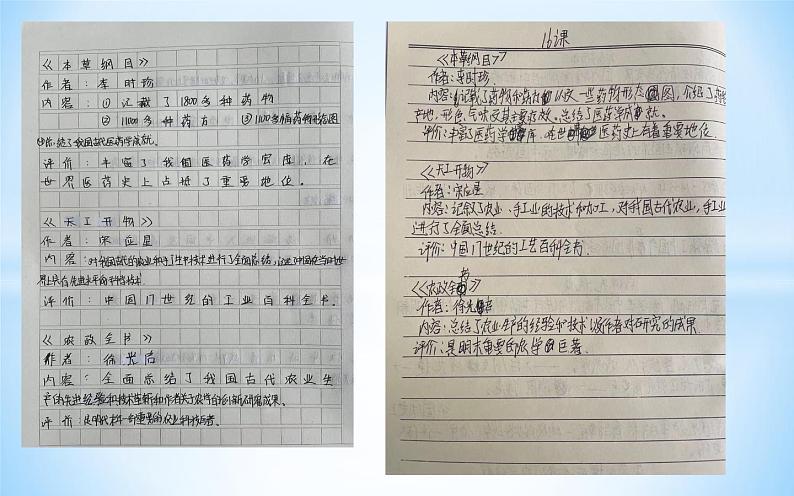 《本草纲目》
作者：李时珍
内容：①记载了1800多种药物
②11000多种药方 ③1100多幅药物形态图
④总结了我国古代医药学成就。
评价：丰富了我国医药学宝库，在
世界医药史上占据了重要地位。
《天工开物》
作者：宋应星
内容：对我国古代的农业和手工业生产技术进行了全面总结，记述了中国在当时世
界上具有先进水平的科学技术
评价：中国17世纪的工业百科全书.
《农政全书》
作者：徐光启
内容：全面总结了我国古代农业生
产的先进经验和技术革新和作者关于农学的创新研究成果。
评价：是明代末年重要的农业科技巨著。
16课
《本草纲目》
作者：李时珍
内容：记载了药物和药方以及一些药物形态图，介绍了药物
产地，形色，气味及其主要功效。总结了医药学成就。
评价：丰富了医药学库，在世医药史上有着重要地位.
《天工开物》
作者：宋应星
内容：记叙了农业、手工业的技术和加工，对我国古代农业，手工业
进行了全面总结.
评价：中国17世纪的工艺百科全书.
《农政全书》
作者：徐光启
内容：总结了农业生产的经验和技术以及作者对石研究的成果
评价：是明末重要的农学巨著.